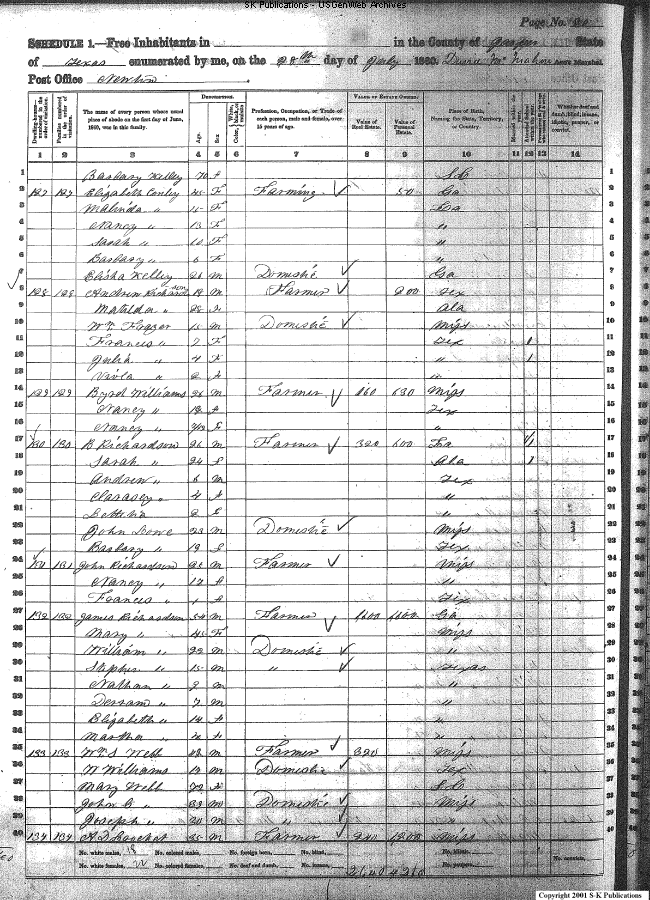 S-K Publications - USGenWeb Archives
Page No. 20
SCHEDULE 1.—Free Inhabitants in in the County of Jasper State
of Texas enumerated by me, on the 28th day of July 1860. Ass't Marshal.
Post Office Newton
The name of every person whose usual place of abode on the first day of June, 1860, was in this family.
DESCRIPTION.
Age.
Sex.
Profession, Occupation, or Trade of each person, male and female, over 15 years of age.
VALUE OF ESTATE OWNED.
Value of Real Estate.
Value of Personal Estate.
Place of Birth, Naming the State, Territory, or Country.
Whether deaf and dumb, blind, insane, idiotic, pauper, or convict.
1 2 3 4 5 6 7 8 9 10 11 12 13 14
1 Barbary Kelley 70 f S.C.
2 127 127 Elizabeth Conley 45 F Farming 50 Ga
3 Malinda " 15 F La
4 Nancy " 13 F "
5 Sarah " 10 F "
6 Barbary " 6 F "
7 Elisha Kelley 26 m Domestic Ga
8 128 128 Andrew Richardson 19 m Farmer 200 Tex
9 Matilda " 28 f Ala
10 Wm Frazer 15 m Domestic Miss
11 Francis " 7 F Tex 1
12 Julia " 4 F " 1
13 Viola " 2 f "
14 129 129 Byrd Williams 26 m Farmer 160 630 Miss
15 Nancy " 18 f Tex
16 Nancy " f "
17 130 130 B Richardson 26 m Farmer 320 600 La 1
18 Sarah " 24 f Ala 1
19 Andrew " 6 m Tex
20 " 4 f "
21 2 f "
22 John Lowe 23 m Domestic Miss
23 Barbary " 19 f Tex
24 131 131 John Richardson m Farmer Miss
25 Nancy " 17 f "
26 Frances " 1 f Tex
27 132 132 James Richardson 54 m Farmer 1600 1600 Ga
28 Mary " 45 F Miss
29 William " 22 m Domestic "
30 Stephen " 15 m " Texas
31 Nathan " 9 m "
32 " 7 m
33 Elizabeth " 14 f "
34 Martha " f "
35 133 133 Wm S Webb 48 m Farmer 320 Miss
36 W Williams m Domestic Tex
37 Mary Webb 72 f S.C
38 John " m Domestic Miss
39 Joseph " 20 m " Tex
40 134 134 35 m Farmer 240 1200 Miss
No. white males, 18 No. colored males, No. foreign born, No. blind,
No. white females, 22 No. colored females, No. deaf and dumb, No. insane,
No. idiotic,
No. paupers,
No. convicts,
2640 4210
Copyright 2001 S-K Publications